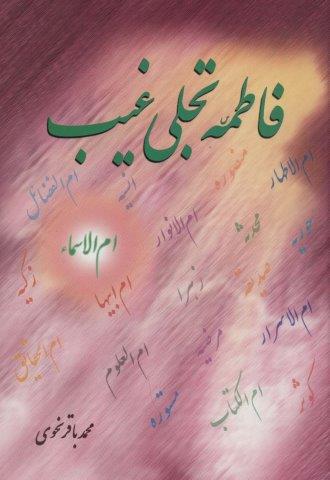 فاطمه تجلی غیب
ام الاطهار
منصوره
انسیه
ام الفضائل
حوریه
محدثه
ام الانوار
ام الاسماء
صدیقه
زهرا
ام ابیها
زکیه
ام الاسرار
مرضیه
ام العلوم
ام الحقایق
کوثر
ام الکتاب
مستوره
محمد باقر نحوی